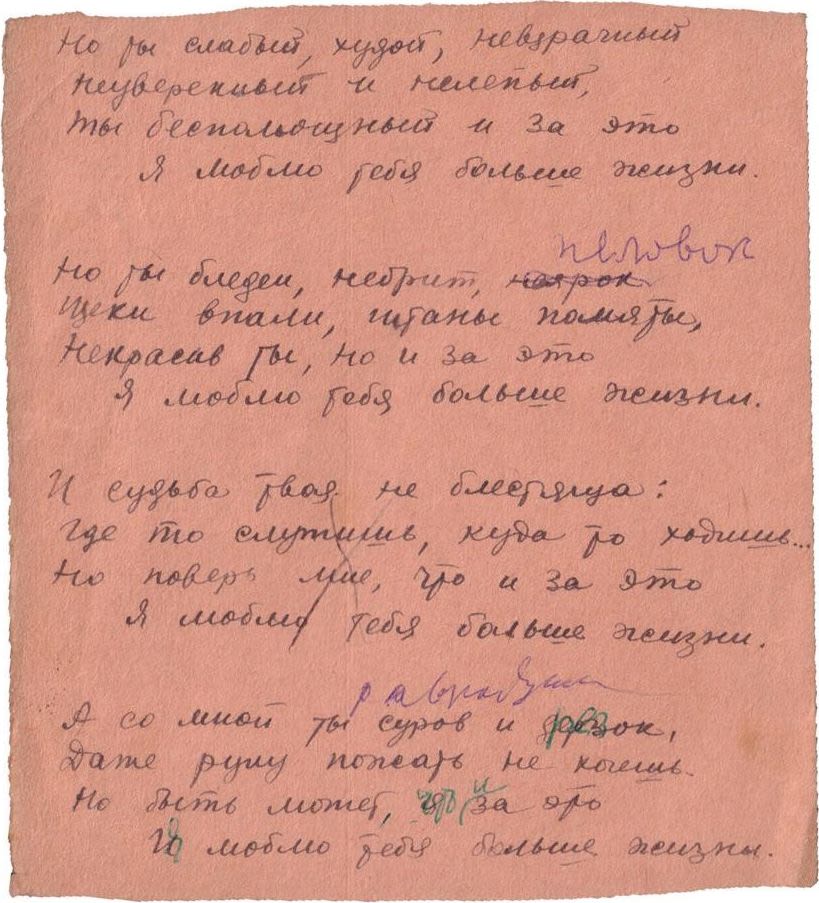 Но ты слабый, худой, невзрачный
Неуверенный и нелепый,
Ты беспомощный и за это
Я люблю тебя больше жизни.
неловок
Но ты бледен, небрит, неярок
Щеки впали, штаны помяты,
Некрасив ты, но и за это
Я люблю тебя больше жизни.
И судьба твоя не блестяща:
Где то служишь, куда то ходишь...
Но поверь мне, что и за это
Я люблю тебя больше жизни.
равнодуш
А со мной ты суров и резок,
Даже руку пожать не хочешь.
Но быть может, что и за это
Я люблю тебя больше жизни.